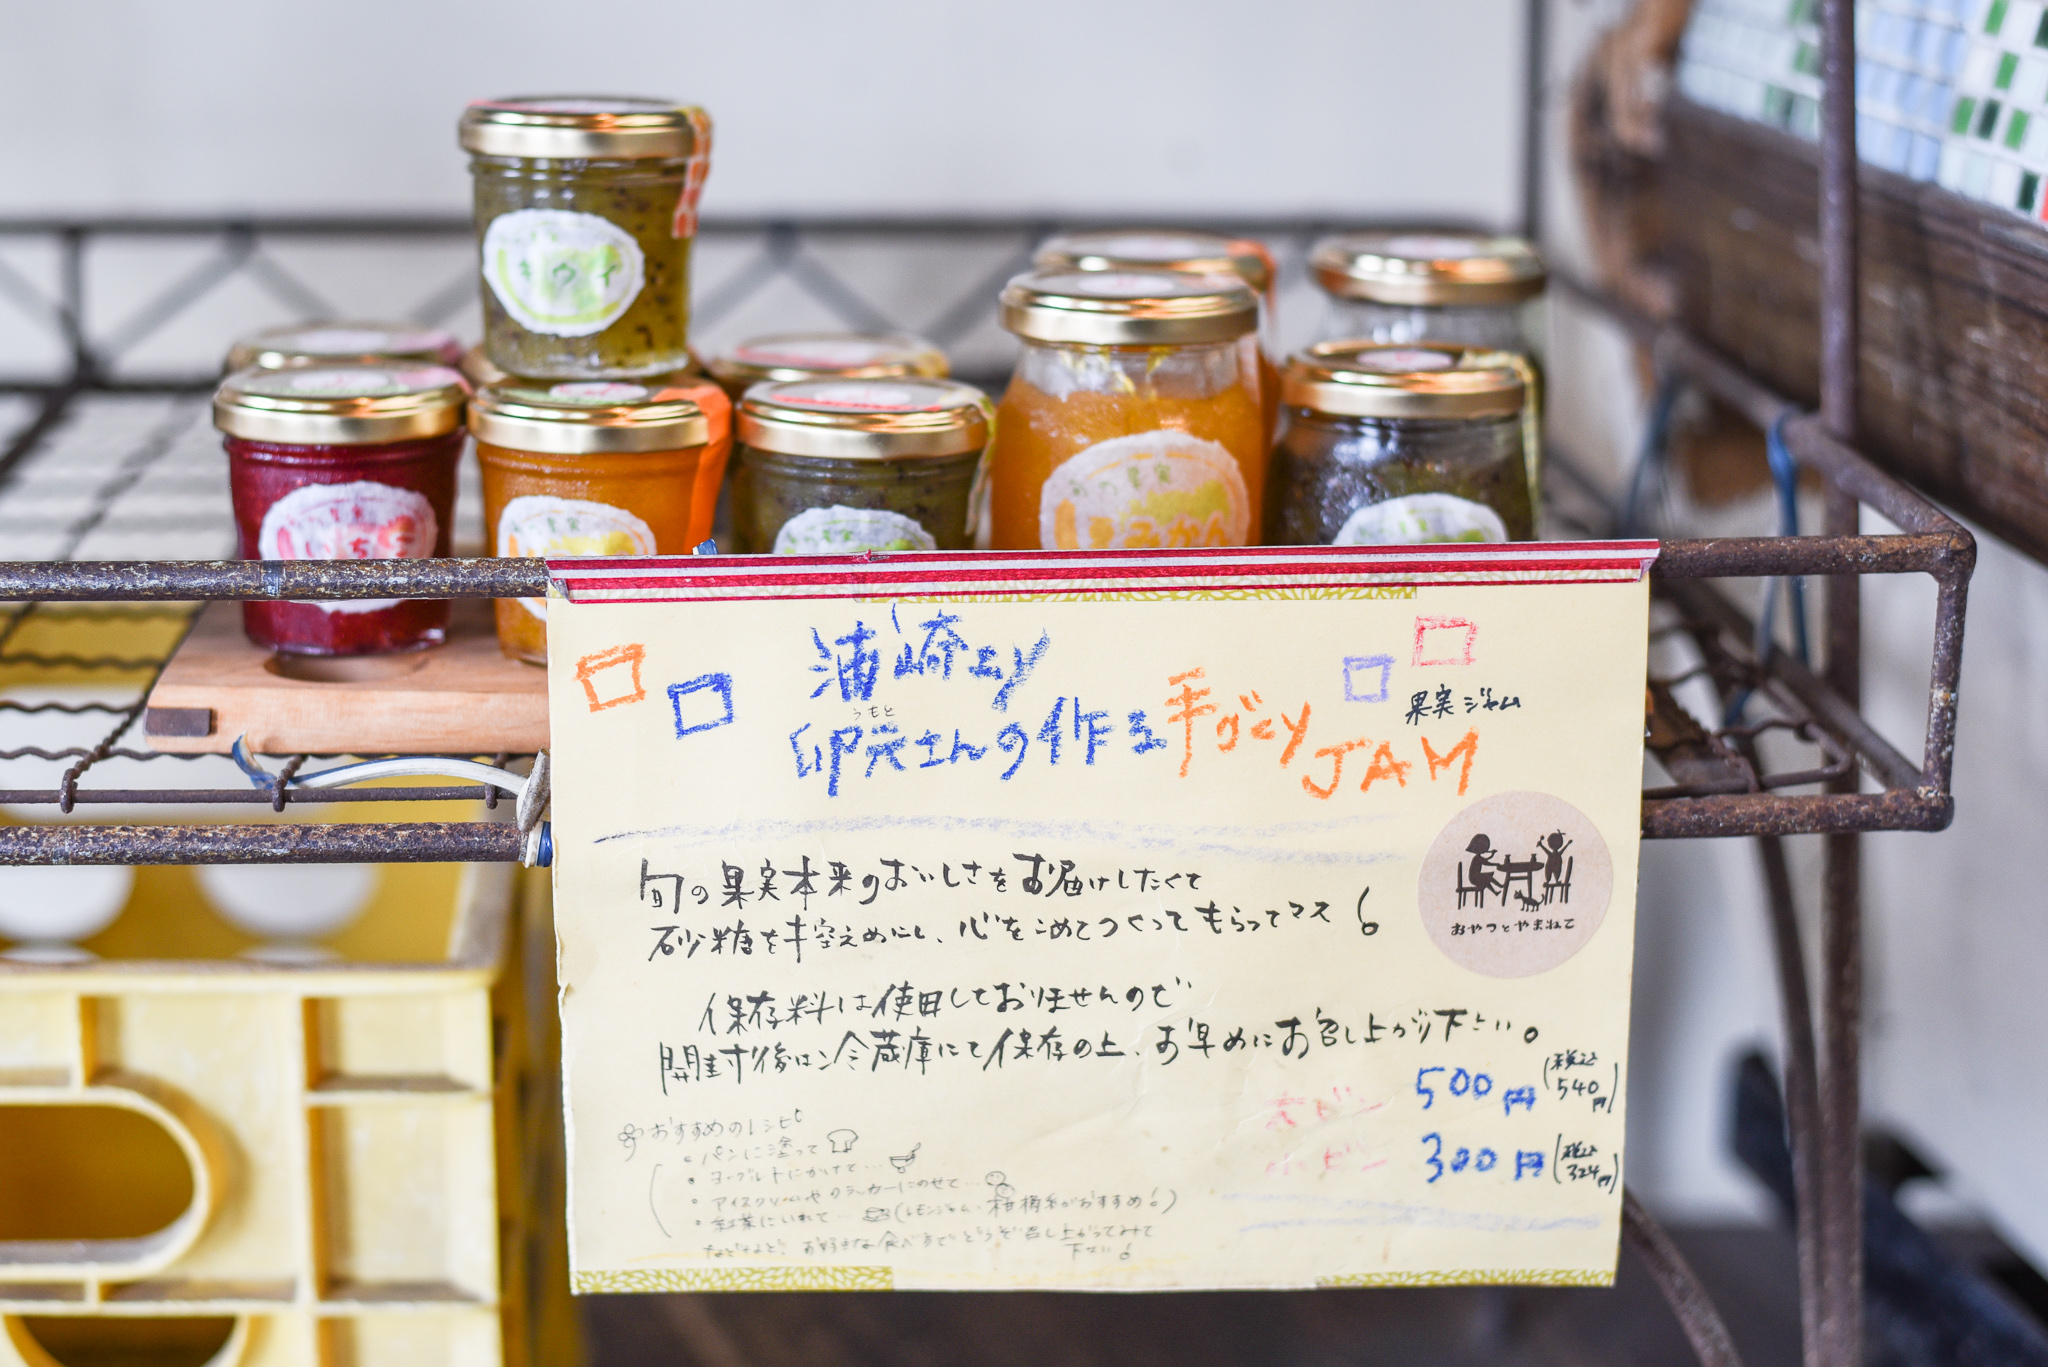 キウイ
旬の果実
いちご
旬の果実
旬の果実
みかん
浦崎より
うもと
卯元さんの作る手づくりJAM
果実ジャム
旬の果実本来のおいしさをお届けしたくて
砂糖を半控えめにし、心をこめてつくってもらってマス!
おやつとやまねこ
保存料は使用しておりませんので
開封後は冷蔵庫にて保存の上、お早めにお召し上がり下さい。
大ビン 500円(税込540円)
小ビン 300円(税込324円)
おすすめのレシピ
・パンに塗って
・ヨーグルトにかけて…
・アイスクリームやクラッカーにのせて…
・紅茶にいれて…(レモンジャム、柑橘系がおすすめ!)
などなど、お好きな食べ方でどうぞ召し上がってみて
下さい!